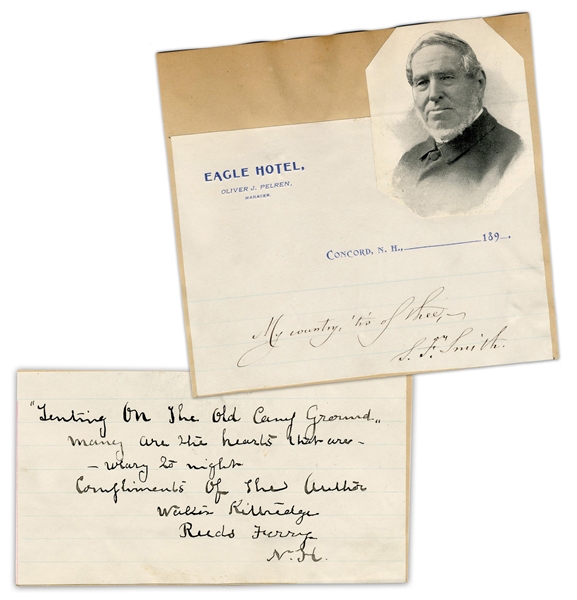 EAGLE HOTEL,
OLIVER J. PELREN,
MANAGER.
CONCORD, N. H., 189 .
My country, 'tis of thee,—
S. F. Smith.
"Tenting On The Old Camp Ground„
Many are the hearts that are –
– weary to night
Compliments Of The Author
Walter Kittredge
Reeds Ferry
N. H.